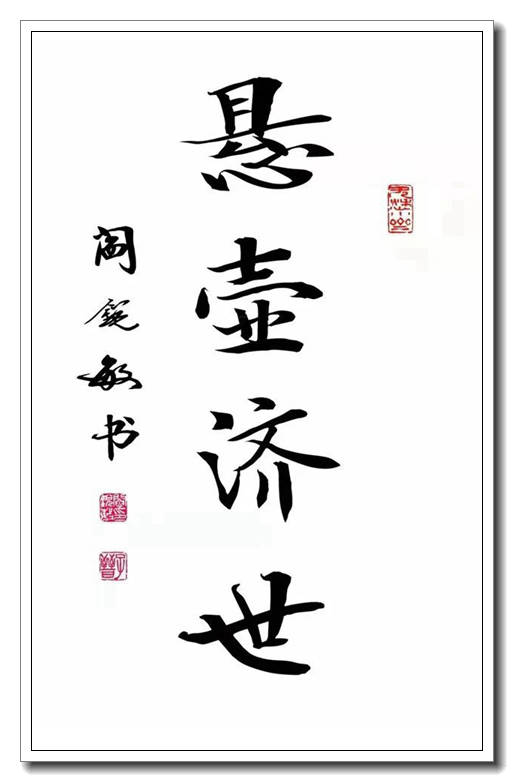 悬壶济世
阎锐敏书